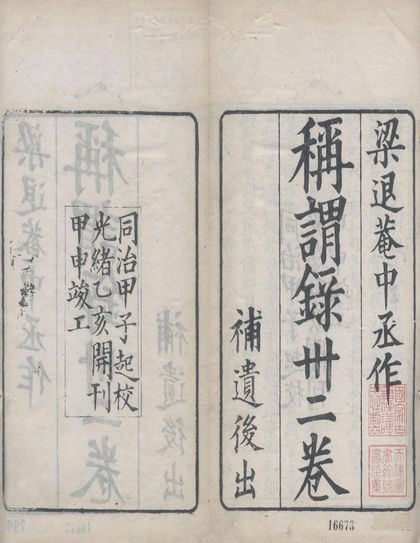 梁退菴中丞作
稱謂錄卅二卷
補遺後出
同治甲子起校
光緒乙亥開刊
甲申竣工
16673